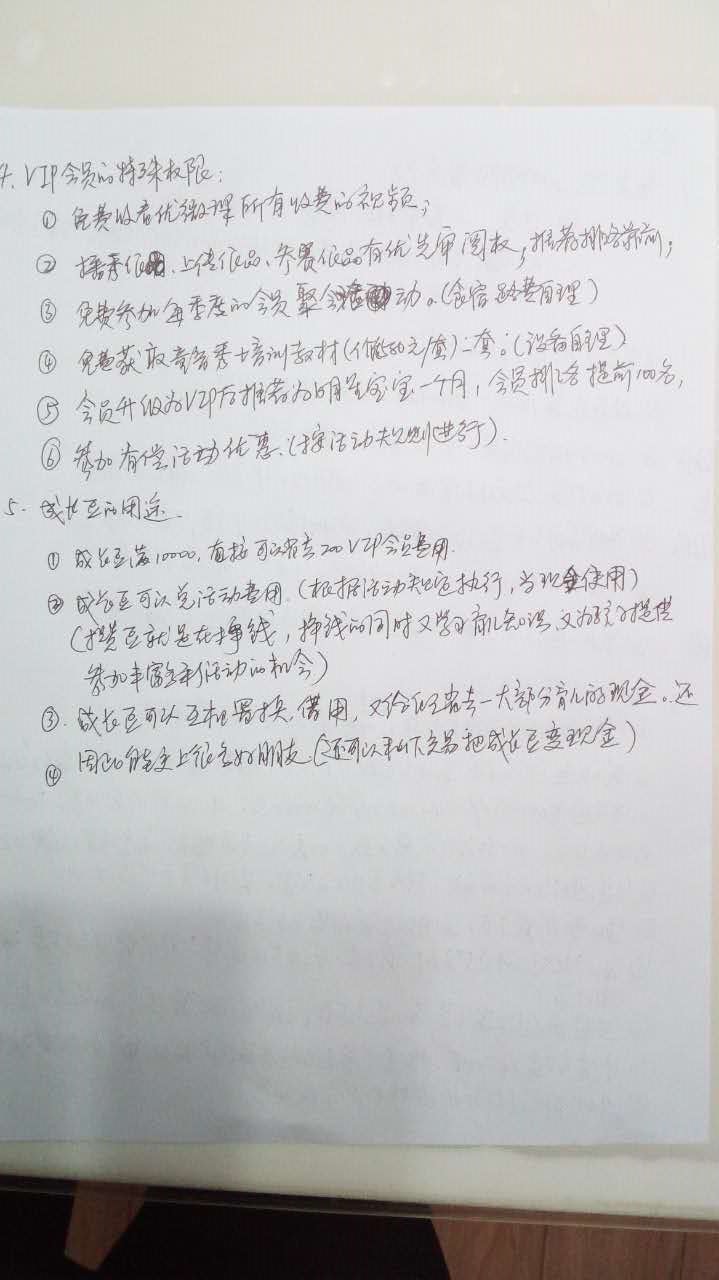 4. VIP会员的特殊权限：
① 免费收看优微课所有收费的视频；
② 播秀作品、上传作品、参赛作品有优先审阅权，推荐排名靠前；
③ 免费参加每季度的会员聚会活动。(食宿路费自理)
④ 免费获取音秀士培训教材(价值50元/套)一套。(设备自理)
⑤ 会员升级为VIP后推荐为明星宝宝一个月，会员排名提前100名，
⑥ 参加有偿活动优惠.(按活动规则进行).
5. 成长豆的用途
① 成长豆满10000，直接可以省去200VIP会员费用.
② 成长豆可以兑活动费用.(根据活动规定执行，当现金使用)
(攒豆就是在挣钱，挣钱的同时又学习育儿知识又为孩子提供
参加丰富多彩活动的机会)
③. 成长豆可以互相置换,借用，又给你省去一大部分育儿的现金。还
④ 因此能交上很多好朋友.(还可以私下交易把成长豆变现金)